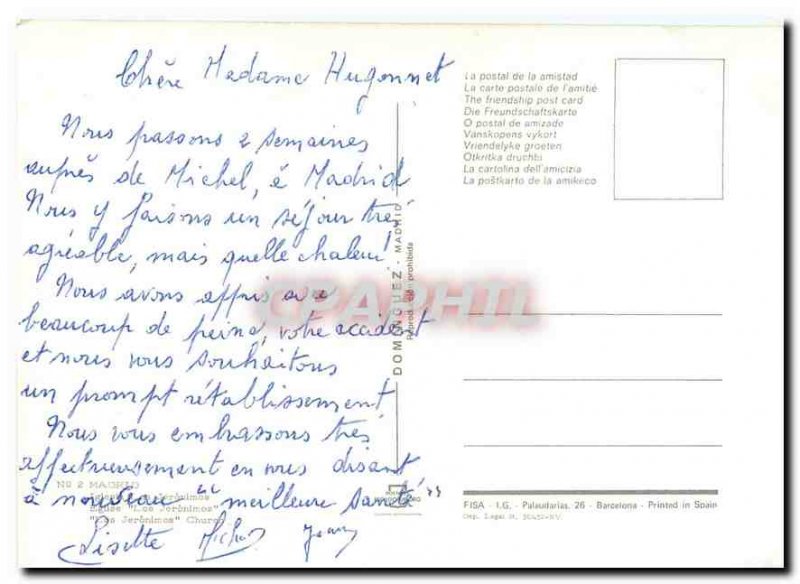 Chère Madame Hugonnet
Nous passons 2 semaines
auprès de Michel, à Madrid
Nous y faisons un séjour très
agréable, mais quelle chaleur!
Nous avons appris avec
beaucoup de peine, votre accident
et nous vous souhaitons
un prompt rétablissement
Nous vous embrassons très
affectueusement en vous disant
à nouveau "meilleure santé"
Lisette Michel Jean
Nº 2 MADRID
Iglesia "Los Jerónimos"
Eglise "Los Jerónimos"
"Los Jerónimos" Church
DOMINGUEZ - MADRID
Reproducción prohibida
CPAPHIL
La postal de la amistad
La carte postale de l'amitié
The friendship post card
Die Freundschaftskarte
O postal de amizade
Vanskopens vykort
Vriendelyke groeten
Otkritka druchbi
La cartolina dell'amicizia
La poŝtkarto de la amikeco
FISA - I.G. - Palaudarias, 26 - Barcelona - Printed in Spain